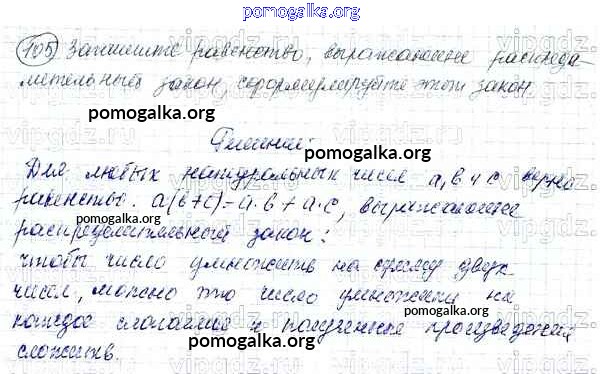 pomogalka.org
105) Запишите равенство, выражающее распреде-
лительный закон, сформулируйте этот закон.
pomogalka.org
Решение:
pomogalka.org
Для любых натуральных чисел а, в и с верно
равенство. а(в+с)=а·в+а·с, выражающее
pomogalka.org
распределительный закон:
чтобы число умножить на сумму двух
чисел, можно это число умножить на
каждое слагаемое и полученные произведения
pomogalka.org
сложить.
pomogalka.org